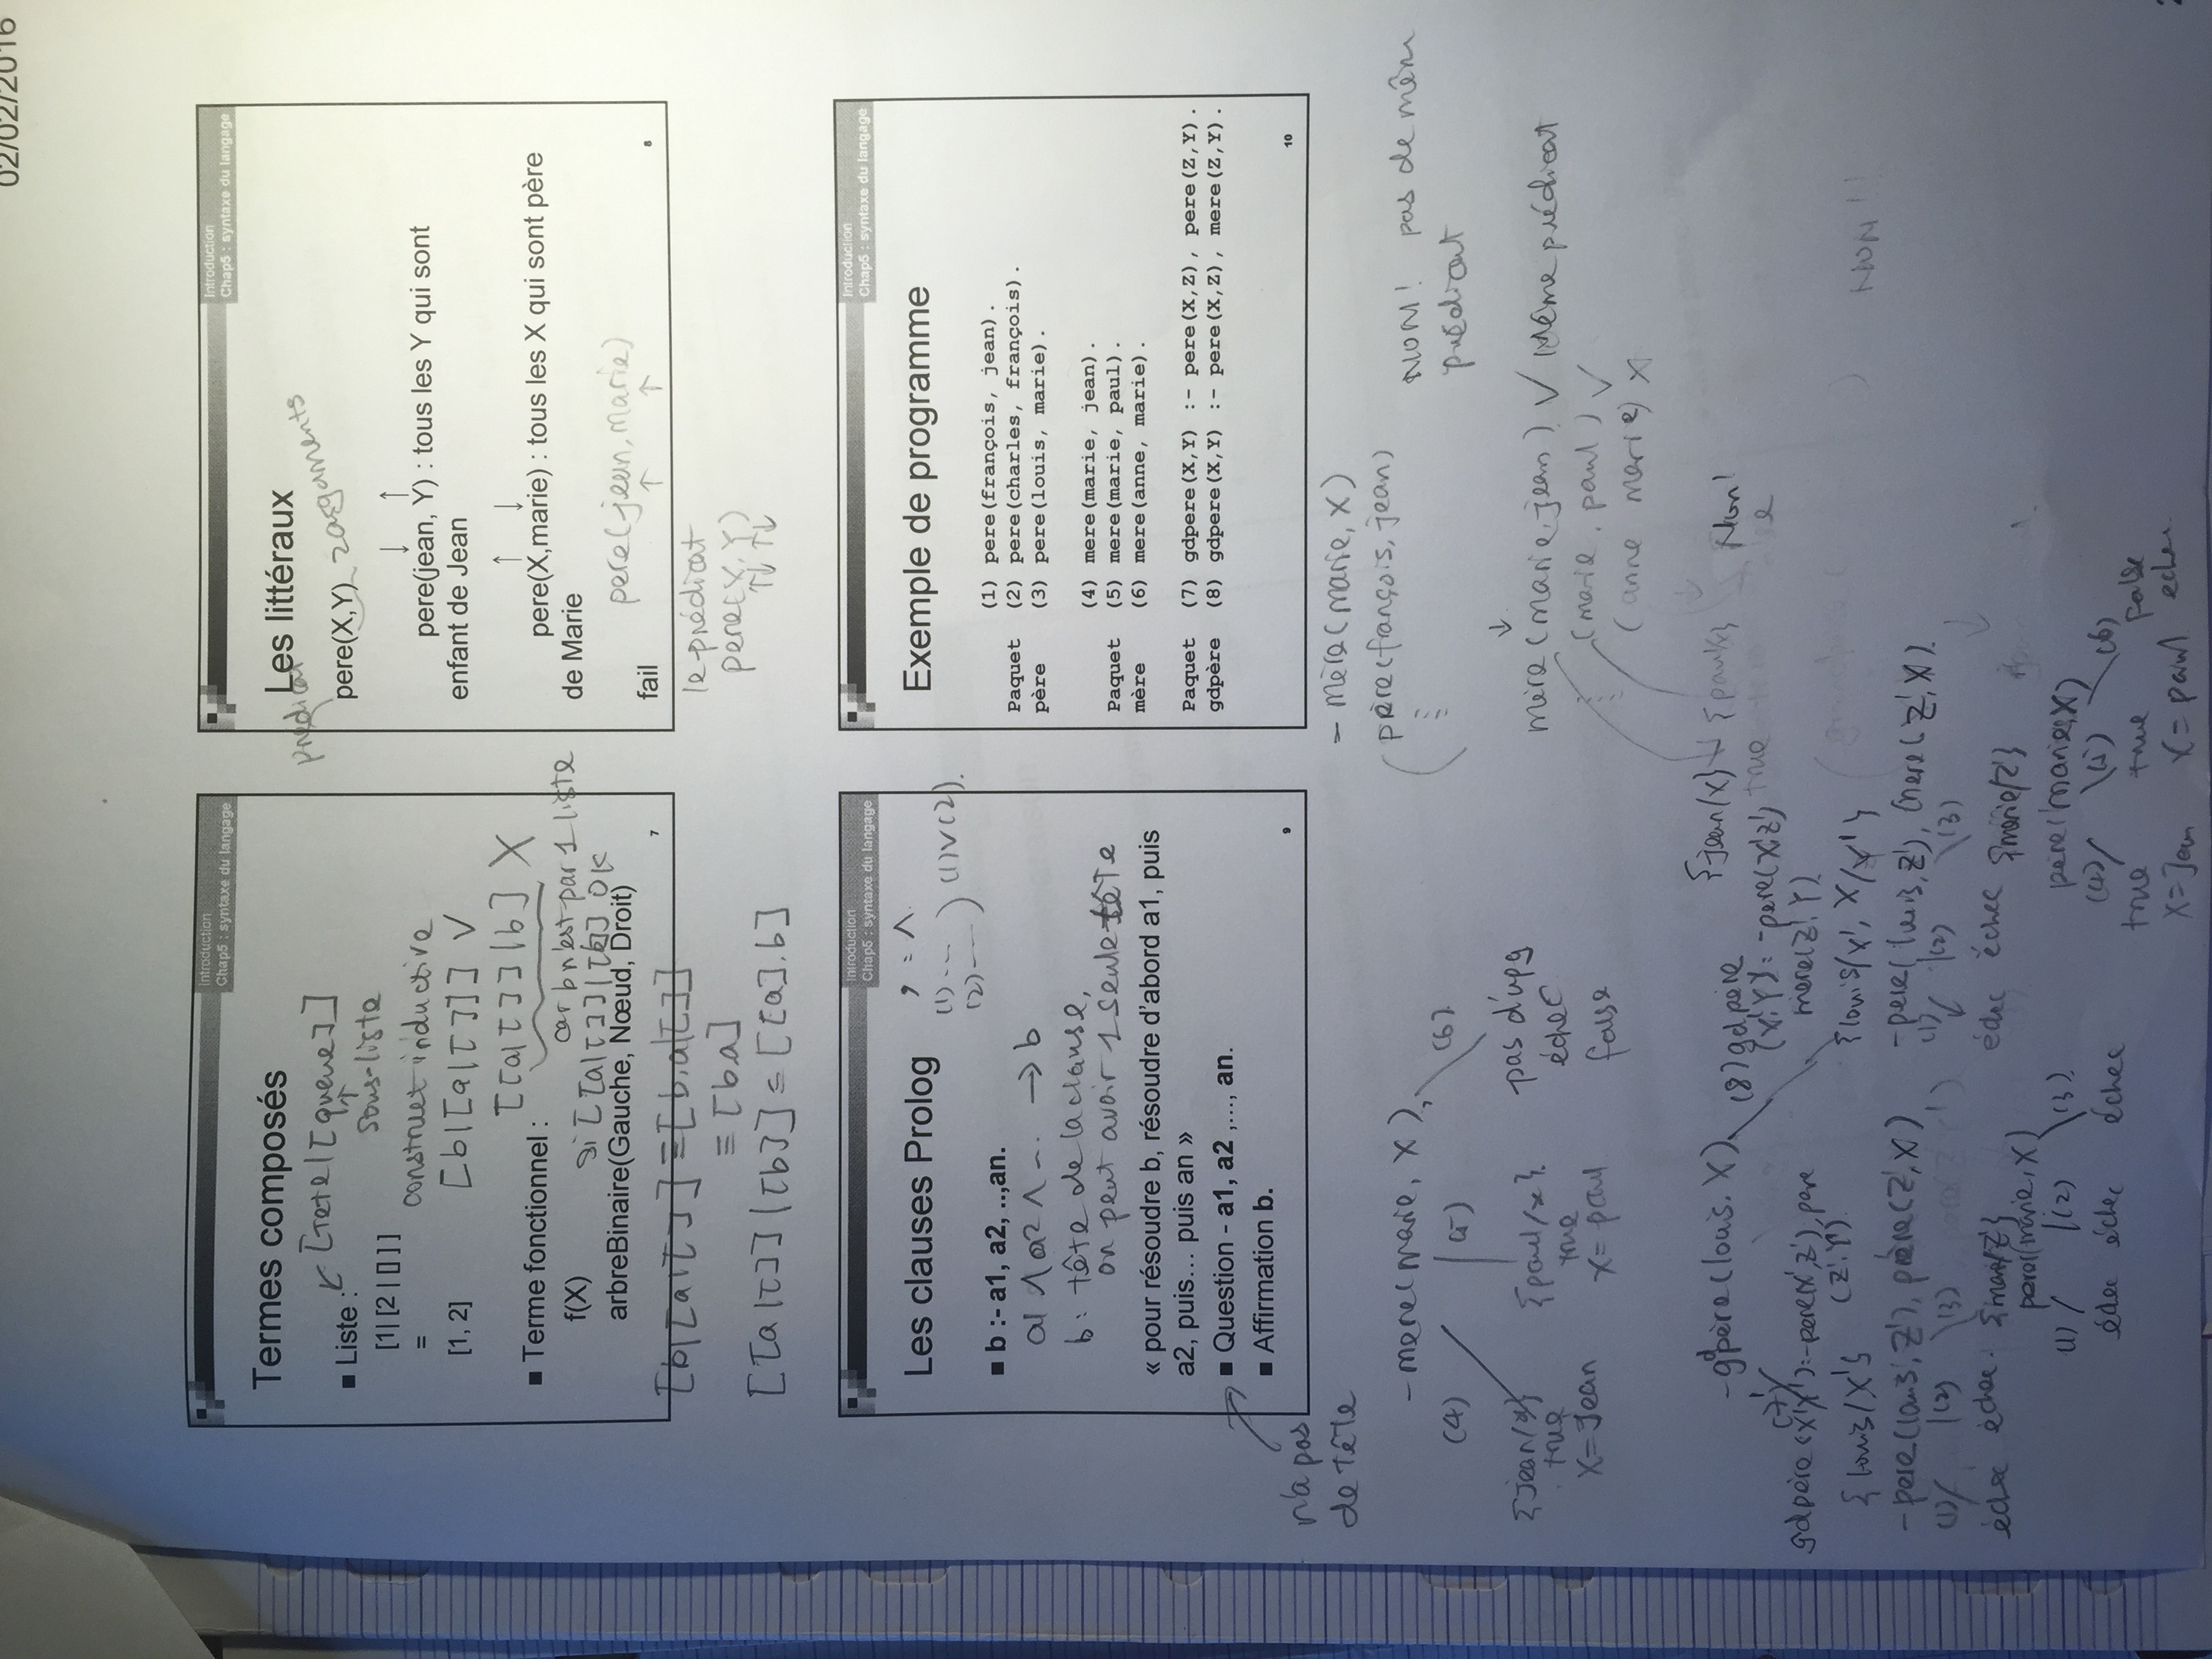 02/02/2016
Introduction
Chap5 : syntaxe du langage
Termes composés
[Tete|[queue]]
■ Liste :
sous-liste
[1|[2|[]]]
construct inductive
=
[1, 2]
[b|[a|[]]] √
[[a|[]]|b] X
■ Terme fonctionnel :
car b n'est par 1 liste
f(X)
si [[a|[]]|[b]] OK
arbreBinaire(Gauche, Nœud, Droit)
7
[b|[a|[]] ≡ [b,a|[]]
≡ [b,a]
[[a|[]]|[b]] = [[a],b]
Introduction
Chap5 : syntaxe du langage
Les littéraux
prédicat
pere(X,Y) 2 argaments
↓ ↑
pere(jean, Y) : tous les Y qui sont
enfant de Jean
↑ ↓
pere(X,marie) : tous les X qui sont père
de Marie
pere(jean, marie)
fail
↑ ↑
8
le prédicat
pere(X, Y)
↑↓ ↑↓
Introduction
Chap5 : syntaxe du langage
Les clauses Prolog
, = ∧.
(1) ---
(2) --- ) (1)∨(2).
■ b :- a1, a2, ..,an.
a1 ∧ a2 ∧ ... → b
b : tête de la clause,
on peut avoir 1 seule tête
« pour résoudre b, résoudre d'abord a1, puis
a2, puis… puis an »
■ Question - a1, a2 ,…, an.
■ Affirmation b.
9
n'a pas
de tête
Introduction
Chap5 : syntaxe du langage
Exemple de programme
(1) pere(françois, jean).
Paquet (2) pere(charles, françois).
père (3) pere(louis, marie).
(4) mere(marie, jean).
Paquet (5) mere(marie, paul).
mère (6) mere(anne, marie).
Paquet (7) gdpere(X,Y) :- pere(X,Z), pere(Z,Y).
gdpère (8) gdpere(X,Y) :- pere(X,Z), mere(Z,Y).
10
- mère(marie, X)
père(françois, jean)
NON! pas de même
prédicat
- mere(marie, X),
(4) (5) (6)
{jean/x} {paul/x} pas d'upg
true true échec
X = Jean X = paul false
↓
mère (marie, jean) √ Même prédicat
(marie, paul) √
(anne marie) X
{jean/x} {paul/x} Non!
true
- gdpère(louis, X)
(7)
gdpère(X',Y') :- pere(X',Z'), pere
(Z',Y').
{louis/X'}
- pere(louis, Z'), père(Z', X)
(1) (2) (3)
échec échec {marie/Z'}
pere(marie, X)
(1) (2) (3)
échec échec échec
(8) gdpère
(X',Y') :- pere(X',Z')
mere(Z',Y').
{louis/X', X/Y'}
- pere(louis, Z'), mere(Z', X).
(1) (2) (3)
échec échec {marie/Z'}
père(marie, X)
(4) (5) (6)
true true false
X = Jean X = paul echec
NON!!